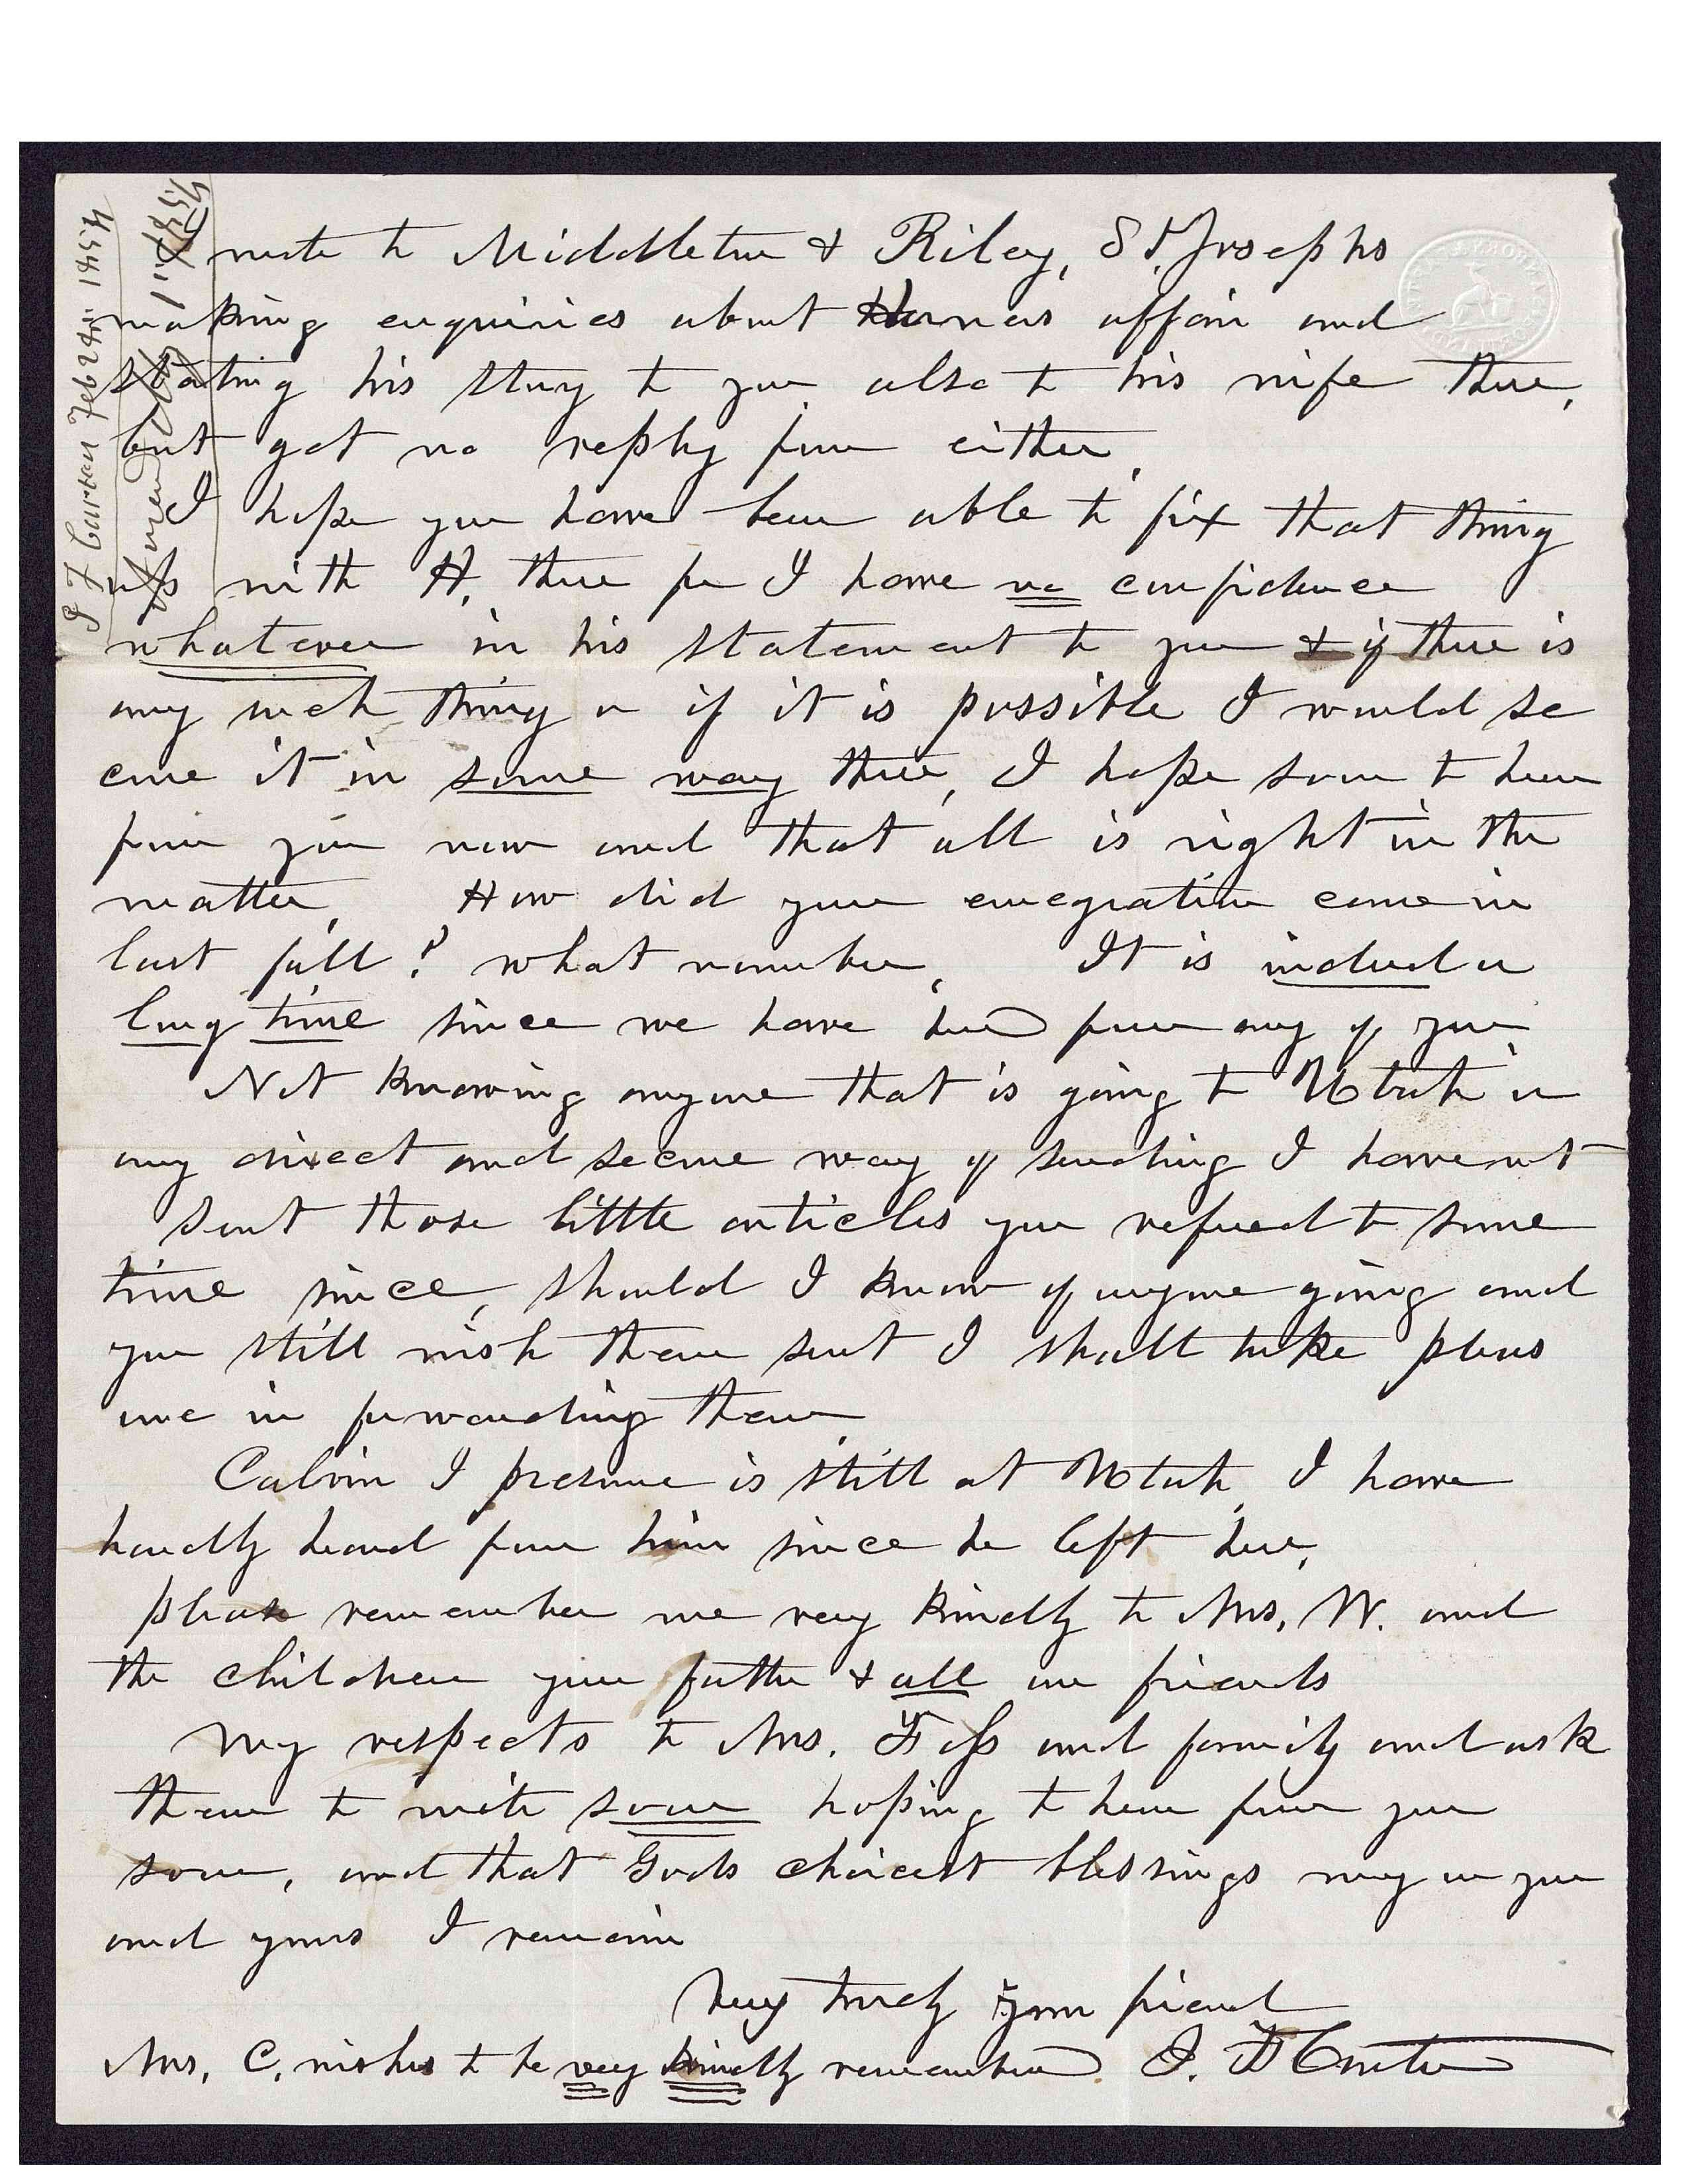 I wrote to Middleton & Riley, St. Josephs
making enquiries about Horners affair and
stating his story to you, also to his wife there,
but got no reply from either.
I hope you have been able to fix that thing
up with H, there for I have no confidence
whatever in his statement to you & if there is
any such thing or if it is possible I would se
cure it in some way there, I hope soon to hear
from you now and that all is right in the
matter, How did your emegration come in
last fall? what number, It is indeed a
long time since we have heard from any of you.
Not knowing anyone that is going to Utah in
any direct and secure way of sending I have not
sent those little articles you refered to some
time since, should I know of anyone going and
you still wish them sent I shall take pleas
ure in forwarding them.
Calvin I presume is still at Utah, I have
hardly heard from him since he left here,
please remember me very kindly to Mrs. W. and
the children your father & all our friends
My respects to Mrs. and family and ask
them to write soon hoping to hear from you
soon, and that Gods choicest blessings may on you
and yours I remain
Very truly your friend
Mrs, C, wishes to be very kindly remembered. I. F. Carter
I F Carter Feb 24th 1854